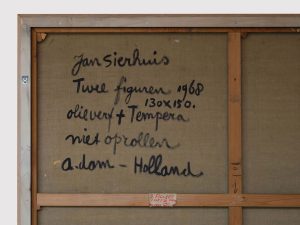 Jan Sierhuis
Twee figuren 1968
130x150.
olieverf + Tempera
niet oprollen
a.dam - Holland